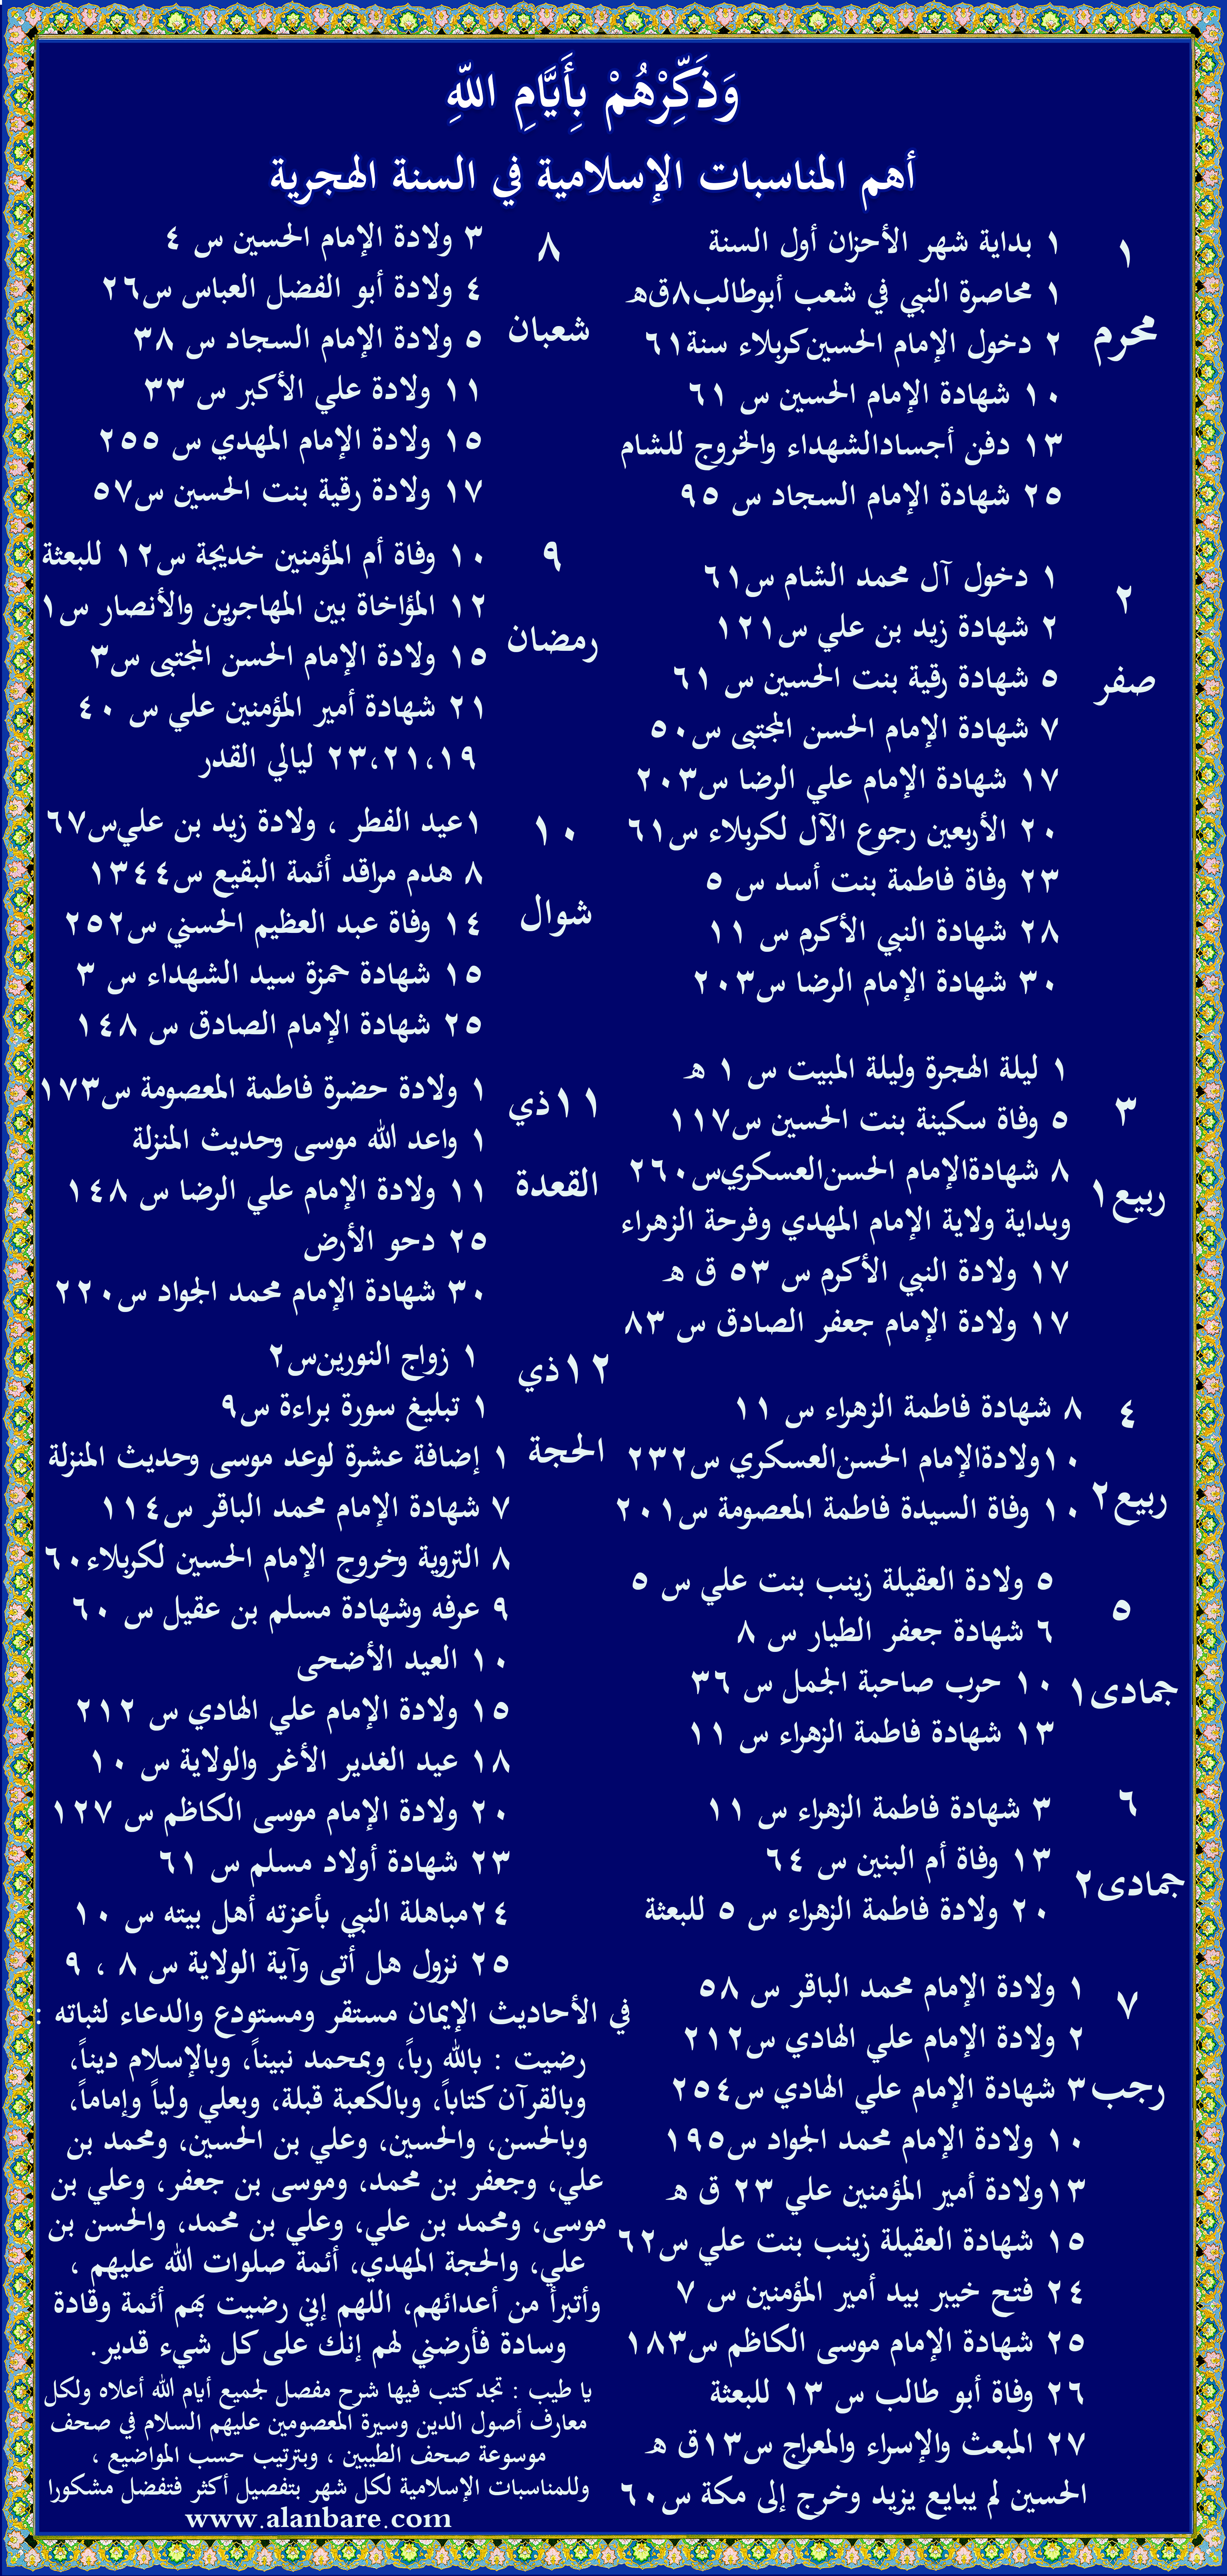 وَذَكِّرْهُمْ بِأَيَّامِ اللّهِ
أهم المناسبات الإسلامية في السنة الهجرية
١
محرم
١ بداية شهر الأحزان أول السنة
١ محاصرة النبي في شعب أبوطالب٨ق‌ه
٢ دخول الإمام الحسين‌كربلاء سنة٦١
١٠ شهادة الإمام الحسين س ٦١
١٣ دفن أجسادالشهداء والخروج للشام
٢٥ شهادة الإمام السجاد س ٩٥
٢
صفر
١ دخول آل محمد الشام س٦١
٢ شهادة زيد بن علي س١٢١
٥ شهادة رقية بنت الحسين س ٦١
٧ شهادة الإمام الحسن المجتبى س٥٠
١٧ شهادة الإمام علي الرضا س٢٠٣
٢٠ الأربعين رجوع الآل لكربلاء س٦١
٢٣ وفاة فاطمة بنت أسد س ٥
٢٨ شهادة النبي الأكرم س ١١
٣٠ شهادة الإمام الرضا س٢٠٣
٣
ربيع١
١ ليلة الهجرة وليلة المبيت س ١ ه
٥ وفاة سكينة بنت الحسين س١١٧
٨ شهادةالإمام الحسن‌العسكري‌س٢٦٠
وبداية ولاية الإمام المهدي وفرحة الزهراء
١٧ ولادة النبي الأكرم س ٥٣ ق ه
١٧ ولادة الإمام جعفر الصادق س ٨٣
٤
ربيع٢
٨ شهادة فاطمة الزهراء س ١١
١٠ولادةالإمام الحسن‌العسكري س٢٣٢
١٠ وفاة السيدة فاطمة المعصومة س٢٠١
٥
جمادى١
٥ ولادة العقيلة زينب بنت علي س ٥
٦ شهادة جعفر الطيار س ٨
١٠ حرب صاحبة الجمل س ٣٦
١٣ شهادة فاطمة الزهراء س ١١
٦
جمادى٢
٣ شهادة فاطمة الزهراء س ١١
١٣ وفاة أم البنين س ٦٤
٢٠ ولادة فاطمة الزهراء س ٥ للبعثة
٧
رجب
١ ولادة الإمام محمد الباقر س ٥٨
٢ ولادة الإمام علي الهادي س٢١٢
٣ شهادة الإمام علي الهادي س٢٥٤
١٠ ولادة الإمام محمد الجواد س١٩٥
١٣ولادة أمير المؤمنين علي ٢٣ ق ه
١٥ شهادة العقيلة زينب بنت علي س٦٢
٢٤ فتح خيبر بيد أمير المؤمنين س ٧
٢٥ شهادة الإمام موسى الكاظم س١٨٣
٢٦ وفاة أبو طالب س ١٣ للبعثة
٢٧ المبعث والإسراء والمعراج س١٣ق ه
الحسين لم يبايع يزيد وخرج إلى مكة س٦٠
٨
شعبان
٣ ولادة الإمام الحسين س ٤
٤ ولادة أبو الفضل العباس س٢٦
٥ ولادة الإمام السجاد س ٣٨
١١ ولادة علي الأكبر س ٣٣
١٥ ولادة الإمام المهدي س ٢٥٥
١٧ ولادة رقية بنت الحسين س٥٧
٩
رمضان
١٠ وفاة أم المؤمنين خديجة س١٢ للبعثة
١٢ المؤاخاة بين المهاجرين والأنصار س١
١٥ ولادة الإمام الحسن المجتبى س٣
٢١ شهادة أمير المؤمنين علي س ٤٠
٢٣،٢١،١٩ ليالي القدر
١٠
شوال
١عيد الفطر ، ولادة زيد بن علي‌س٦٧
٨ هدم مراقد أئمة البقيع س١٣٤٤
١٤ وفاة عبد العظيم الحسني س٢٥٢
١٥ شهادة حمزة سيد الشهداء س ٣
٢٥ شهادة الإمام الصادق س ١٤٨
١١ذي
القعدة
١ ولادة حضرة فاطمة المعصومة س١٧٣
١ واعد الله موسى وحديث المنزلة
١١ ولادة الإمام علي الرضا س ١٤٨
٢٥ دحو الأرض
٣٠ شهادة الإمام محمد الجواد س٢٢٠
١٢ذي
الحجة
١ زواج النورين‌س٢
١ تبليغ سورة براءة س٩
١ إضافة عشرة لوعد موسى وحديث المنزلة
٧ شهادة الإمام محمد الباقر س١١٤
٨ التروية وخروج الإمام الحسين لكربلاء٦٠
٩ عرفه وشهادة مسلم بن عقيل س ٦٠
١٠ العيد الأضحى
١٥ ولادة الإمام علي الهادي س ٢١٢
١٨ عيد الغدير الأغر والولاية س ١٠
٢٠ ولادة الإمام موسى الكاظم س ١٢٧
٢٣ شهادة أولاد مسلم س ٦١
٢٤مباهلة النبي بأعزته أهل بيته س ١٠
٢٥ نزول هل أتى وآية الولاية س ٨ ، ٩
في الأحاديث الإيمان مستقر ومستودع والدعاء لثباته :
رضيت : بالله رباً، وبمحمد نبيناً، وبالإسلام ديناً،
وبالقرآن كتاباً، وبالكعبة قبلة، وبعلي ولياً وإماماً،
وبالحسن، والحسين، وعلي بن الحسين، ومحمد بن
علي، وجعفر بن محمد، وموسى بن جعفر، وعلي بن
موسى، ومحمد بن علي، وعلي بن محمد، والحسن بن
علي، والحجة المهدي، أئمة صلوات الله عليهم ،
وأتبرأ من أعدائهم، اللهم إني رضيت بهم أئمة وقادة
وسادة فأرضني لهم إنك على كل شيء قدير.
يا طيب : تجد كتب فيها شرح مفصل لجميع أيام الله أعلاه ولكل
معارف أصول الدين وسيرة المعصومين عليهم السلام في صحف
موسوعة صحف الطيبين ، وبترتيب حسب المواضيع ،
وللمناسبات الإسلامية لكل شهر بتفصيل أكثر فتفضل مشكورا
www.alanbare.com